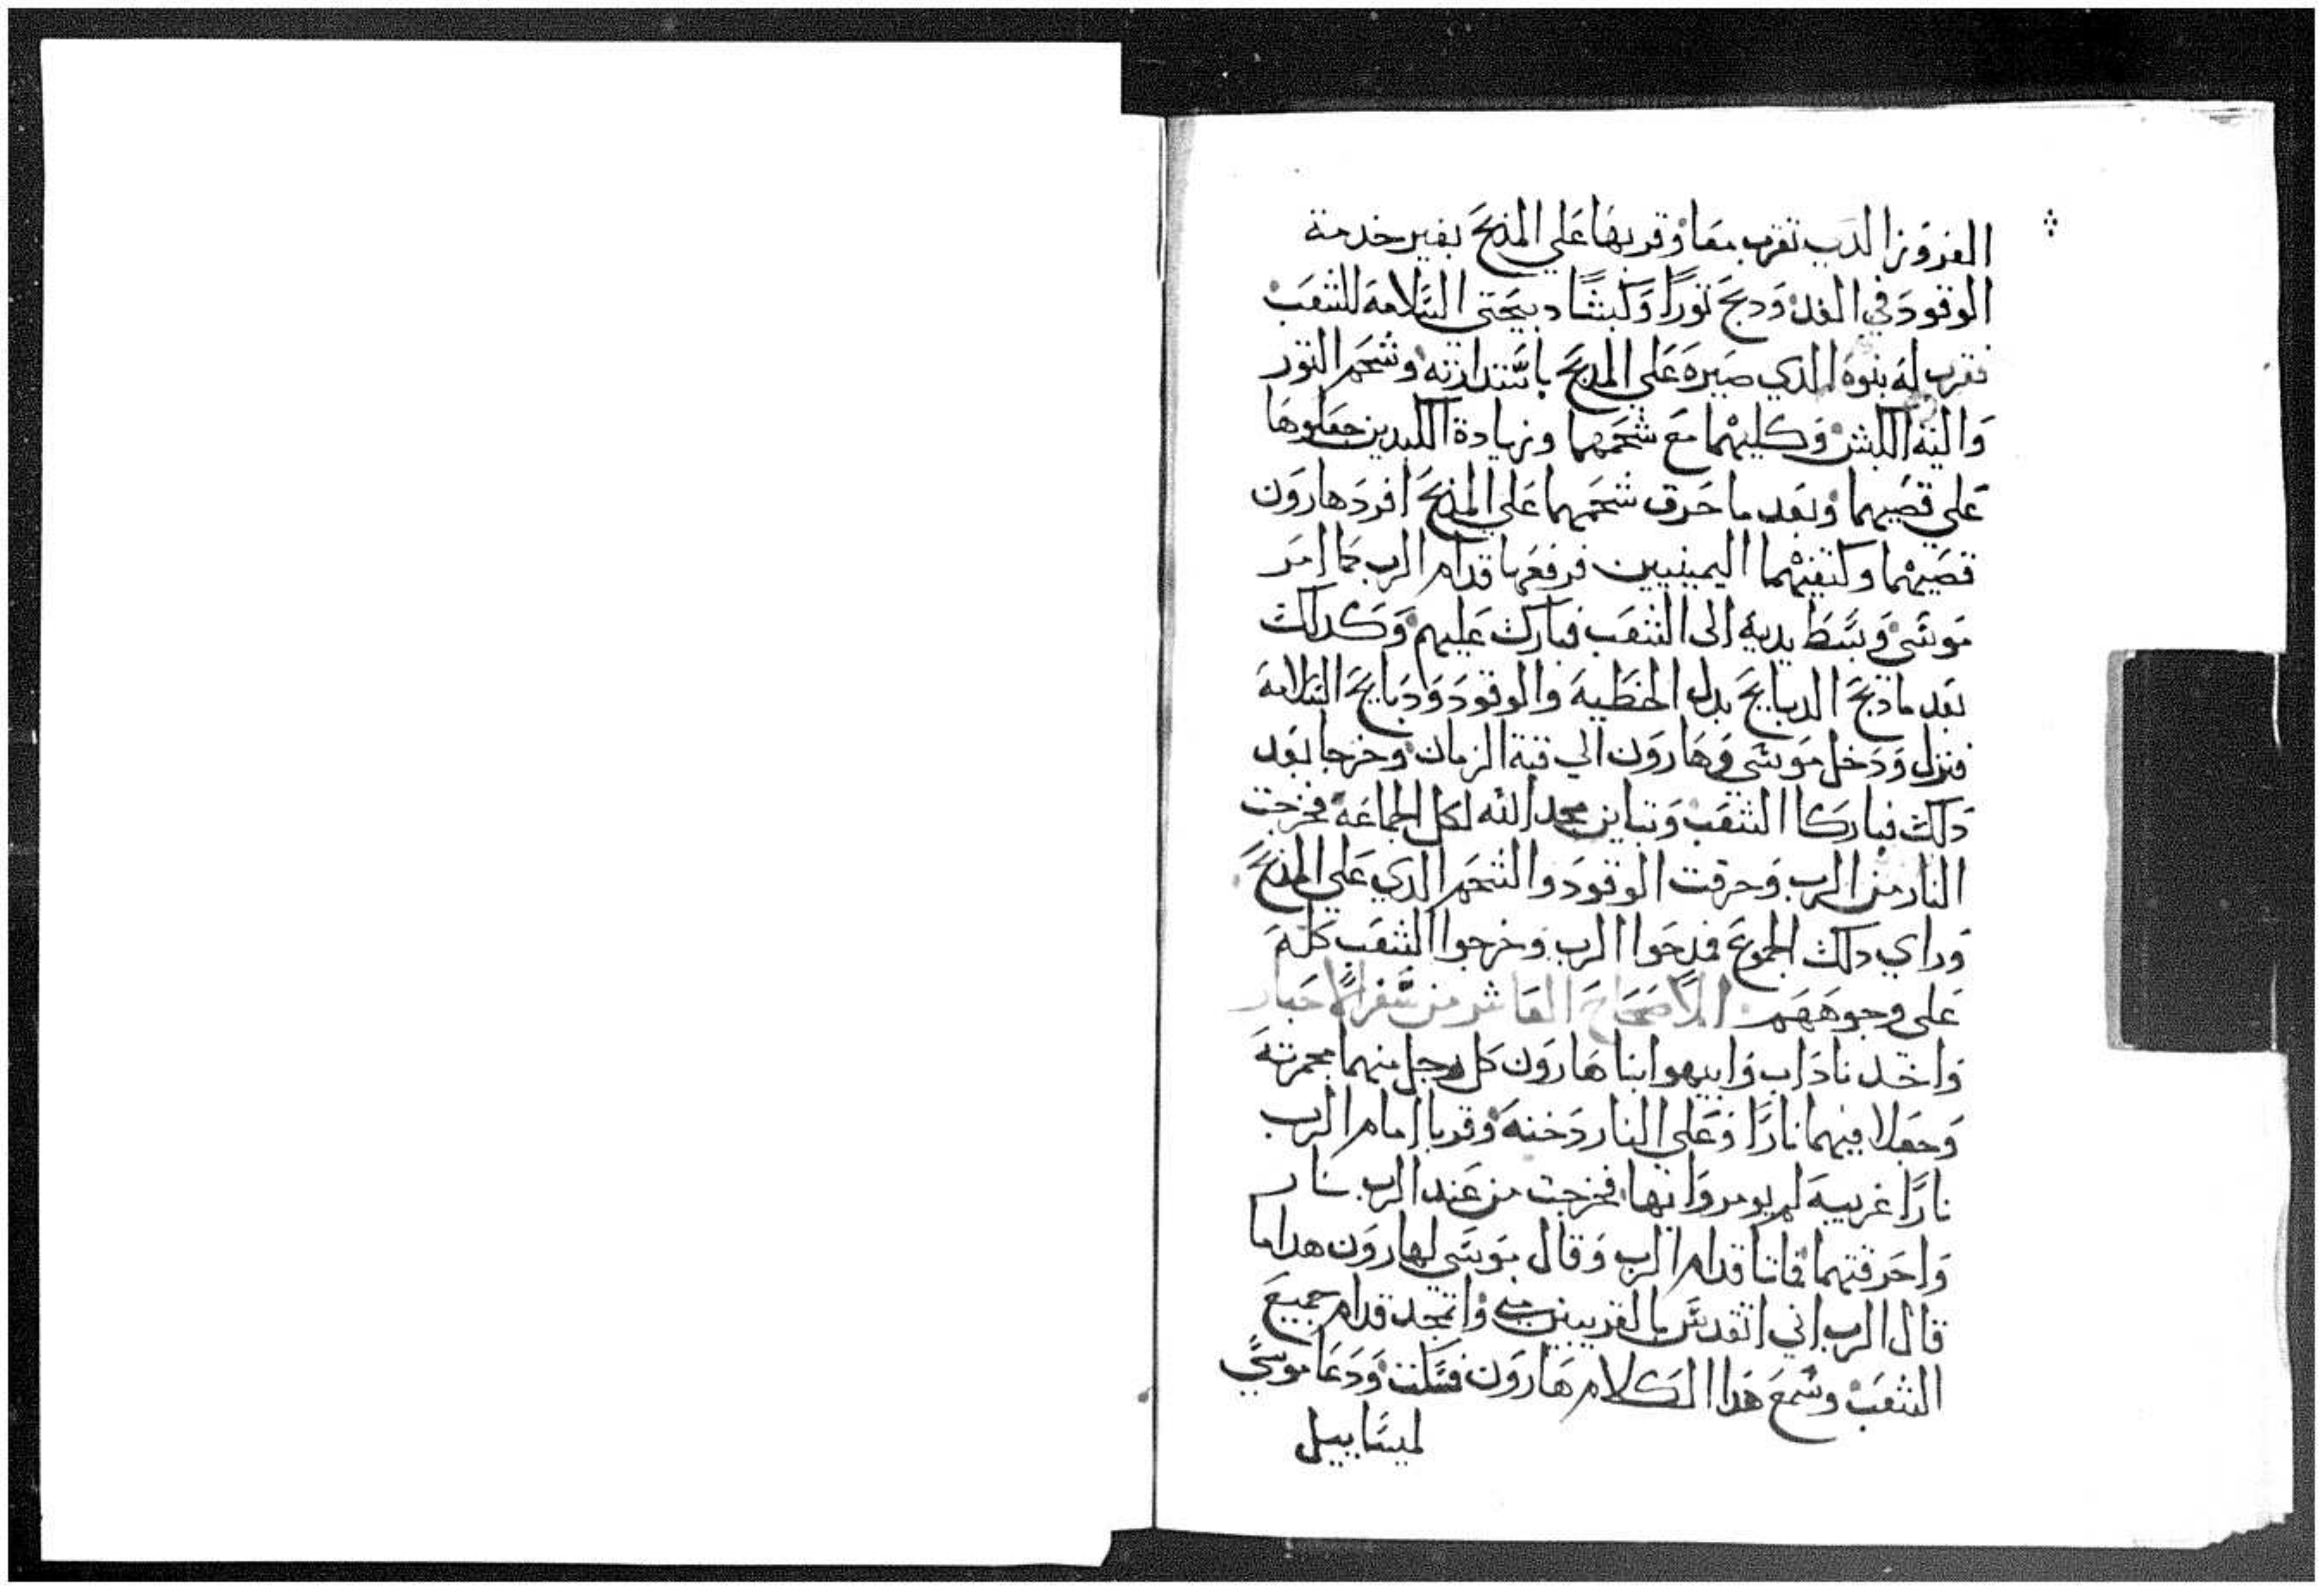 الغرور الدي تقرب معا وقربها علي المذبح بغير خدمة
الوقود في الغد ودبح تورا وكبشا دبيحتي السلامه للشعب
فقرب له بنوه الدي صيره علي المدبح باستدارته وشحم التور
والية الكبش وكليتهما مع شحمهما وزيادة الكبدين جعلوها
علي قصيهما وبعد ما حرق شحمهما علي المذبح افرد هارون
قصيهما وكتفيهما اليمينيين فرفعها قدام الرب كما امر
موسي وبسط يديه الى الشعب فبارك عليهم وكدلك
بعد ما دبح الدبايح بدل الخطيه والوقود ودبايح السلامه
فنزل ودخل موسي وهارون الي قبة الزمان وخرجا بعد
دلك فباركا الشعب وتباين مجد الله لكل الجماعه فخرجت
النار من الرب وحرقت الوقود والشحم الدي علي المذبح
وراي دلك الجموع فمدحوا الرب وخرجوا الشعب كله
علي وجوههم الاصحاح العاشر من سفر الاحبار
واخد ناداب وابيهوا ابنا هارون كل رجل منهما مجمرته
وجعلا فيهما نارا وعلي النار دخنه وقربا امام الرب
نارا غريبه لم يومروا بها فخرجت من عند الرب نار
واحرقتهما فماتا قدام الرب وقال موسي لهارون هدا ما
قال الرب اني اتقدس بالقريبين مني واتمجد قدام جميع
الشعب وسمع هدا الكلام هارون فسكت ودعا موسي
لميساييل